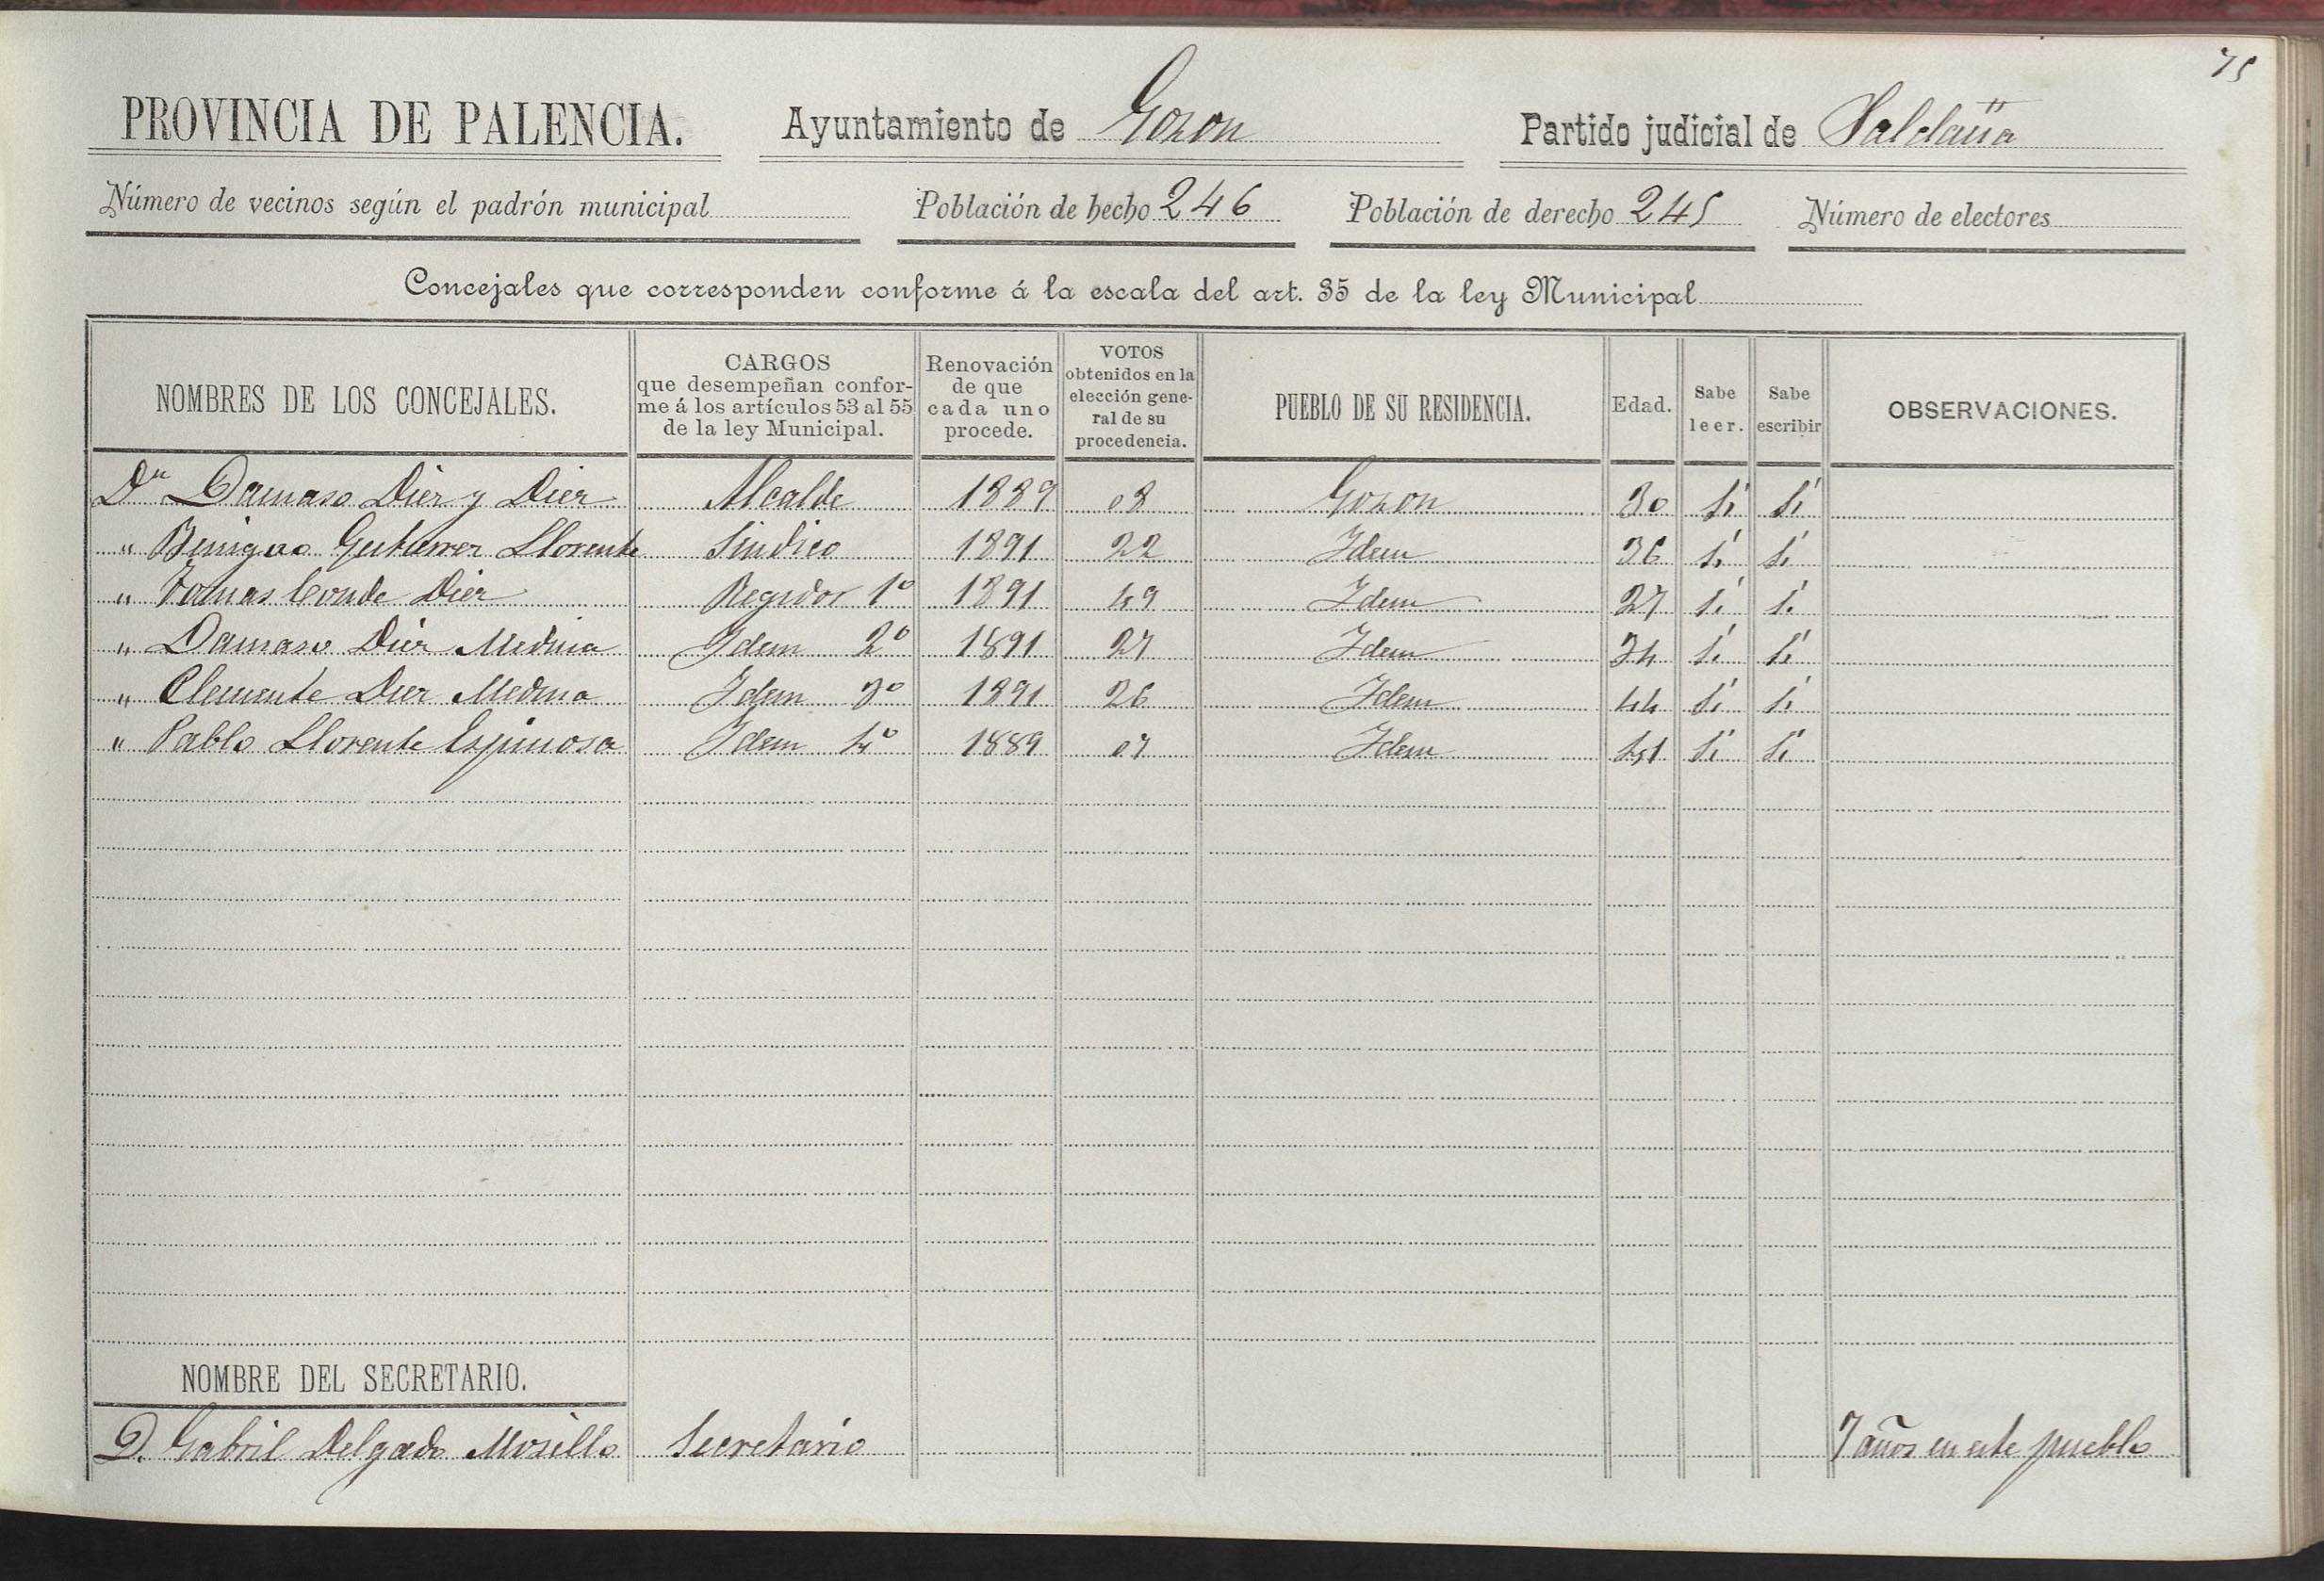 75
PROVINCIA DE PALENCIA. Ayuntamiento de Gozon Partido judicial de Saldaña
Número de vecinos según el padrón municipal Población de hecho 246 Población de derecho 245 Número de electores
Concejales que corresponden conforme á la escala del art. 35 de la ley Municipal
NOMBRES DE LOS CONCEJALES. CARGOS que desempeñan conforme á los artículos 53 al 55 de la ley Municipal. Renovación de que cada uno procede. VOTOS obtenidos en la elección general de su procedencia. PUEBLO DE SU RESIDENCIA. Edad. Sabe leer. Sabe escribir OBSERVACIONES.
Dn Damaso Diez y Diez Alcalde 1889 08 Gozon 30 Si Si
" Benigno Gutierrez Llorente Sindico 1891 22 Idem 36 Si Si
" Tomas Conde Diez Regidor 1º 1891 49 Idem 27 Si Si
" Damaso Diez Medina Idem 2º 1891 27 Idem 34 Si Si
" Clemente Diez Medina Idem 3º 1891 26 Idem 44 Si Si
" Pablo Llorente Espinosa Idem 4º 1889 07 Idem Si Si
NOMBRE DEL SECRETARIO.
D. Gabril Delgado Secretario 7 años en este pueblo